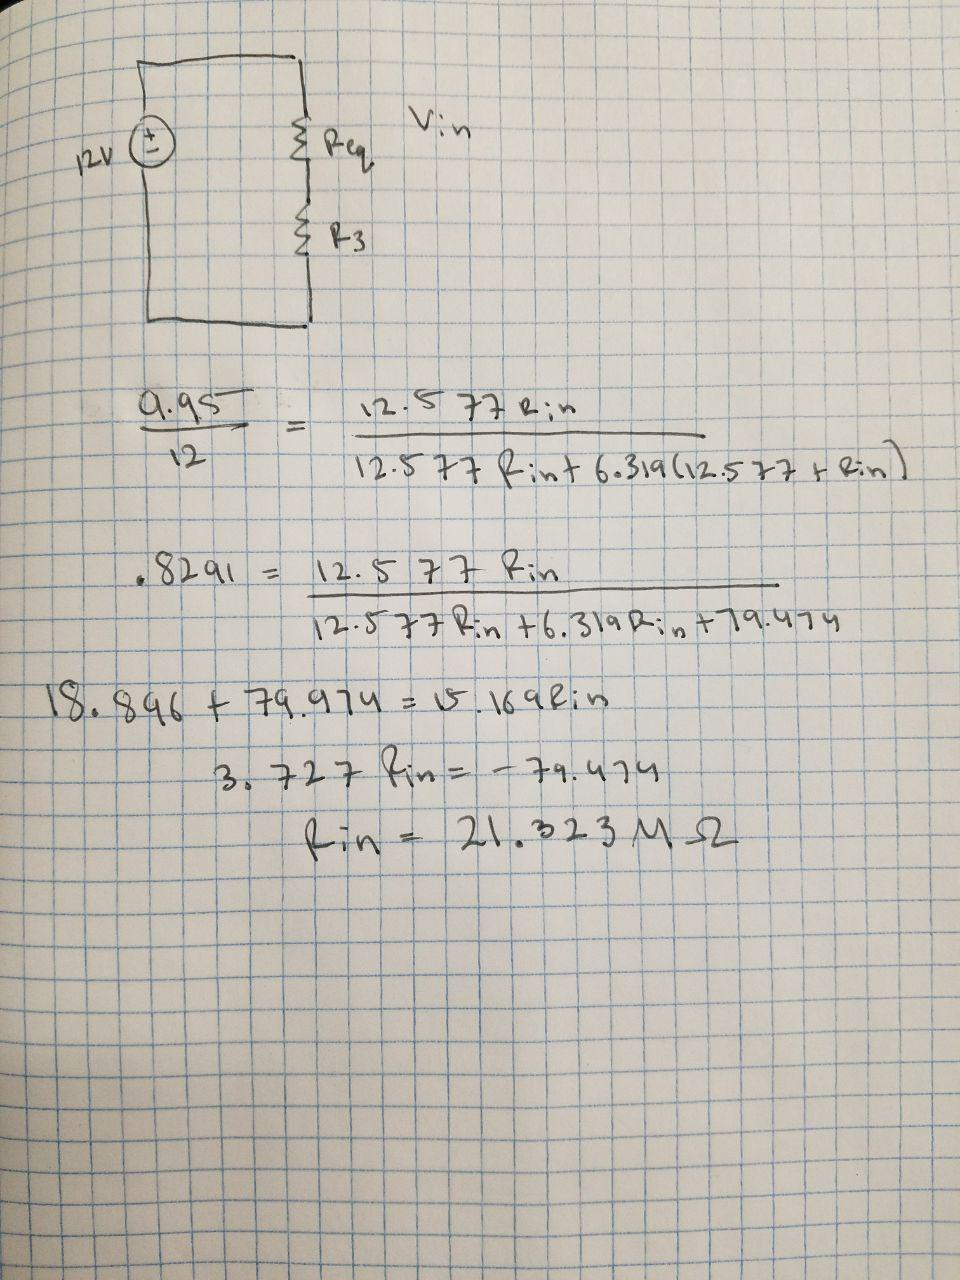 12V
Req
Vin
R3
9.95/12 = 12.577 Rin / 12.577 Rin + 6.319(12.577 + Rin)
.8291 = 12.577 Rin / 12.577 Rin + 6.319 Rin + 79.474
18.896 + 79.974 = 15.169 Rin
3.727 Rin = -79.474
Rin = 21.323 M Ω